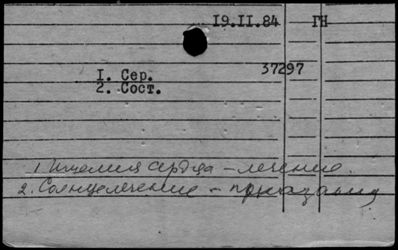 19.II.84 ГН
37297
I. Сер.
2. Сост.
1. Ишемия сердца – лечение.
2. Солнцелечение – показания